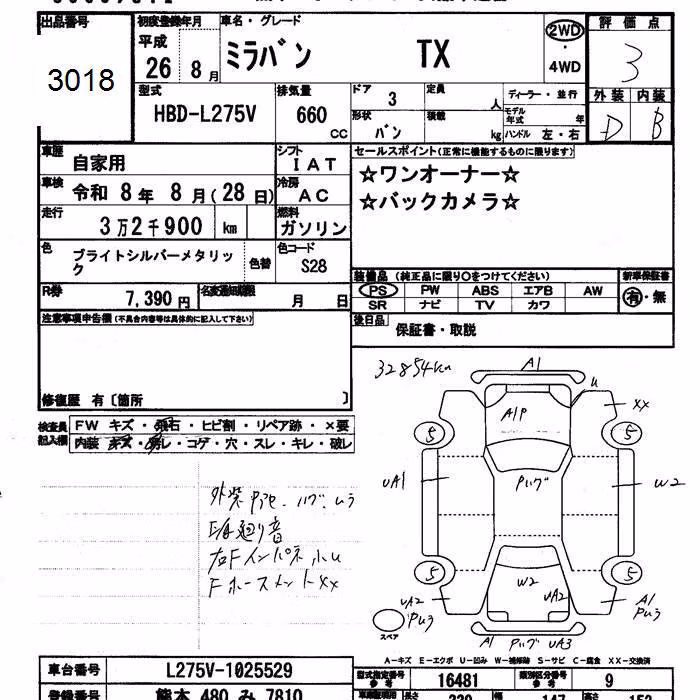 出品番号
3018
初度登録年月
平成
26年 8月
車名・グレード
ミラバン TX
2WD
・
4WD
評価点
3
外装 内装
D B
型式
HBD-L275V
排気量
660
CC
ドア 3
形状 バン
定員 人
積載 kg
ディーラー・並行
モデル年式 年
ハンドル 左・右
車歴 自家用
シフト IAT
車検 令和 8年 8月(28日)
冷房 AC
走行 3万2千900 km
燃料 ガソリン
色 ブライトシルバーメタリック
色替
色コード S28
R券 7,390円
名変通知期限 月 日
セールスポイント(正常に機能するものに限ります)
☆ワンオーナー☆
☆バックカメラ☆
装備品 (純正品に限り○をつけてください)
新車保証書
PS PW ABS エアB AW
SR ナビ TV カワ
有・無
後日品 保証書・取説
注意事項申告欄(不具合内容等は具体的に記入して下さい)
修復歴 有〔箇所 〕
検査員記入欄
FW キズ・飛石・ヒビ割・リペア跡・×要
内装 キズ・汚レ・コゲ・穴・スレ・キレ・破レ
32854km
A1
U
XX
A1P
5
5
UA1
Pハゲ
W2
5
5
W2
UA2
UA2
Pムラ
A1
Pムラ
スペア
A1 Pハゲ UA3
外装Pアセ・ハゲ・ムラ
下廻り音
右FインパネホU
FホースメントXX
A-キズ E-エクボ U-凹み W-補修跡 S-サビ C-腐食 XX-交換済
車台番号 L275V-1025529
型式指定番号 参考 16481
類別区分番号 参考 9
登録番号 熊本 480 み 7810
長さ 339
幅 147
高さ 153